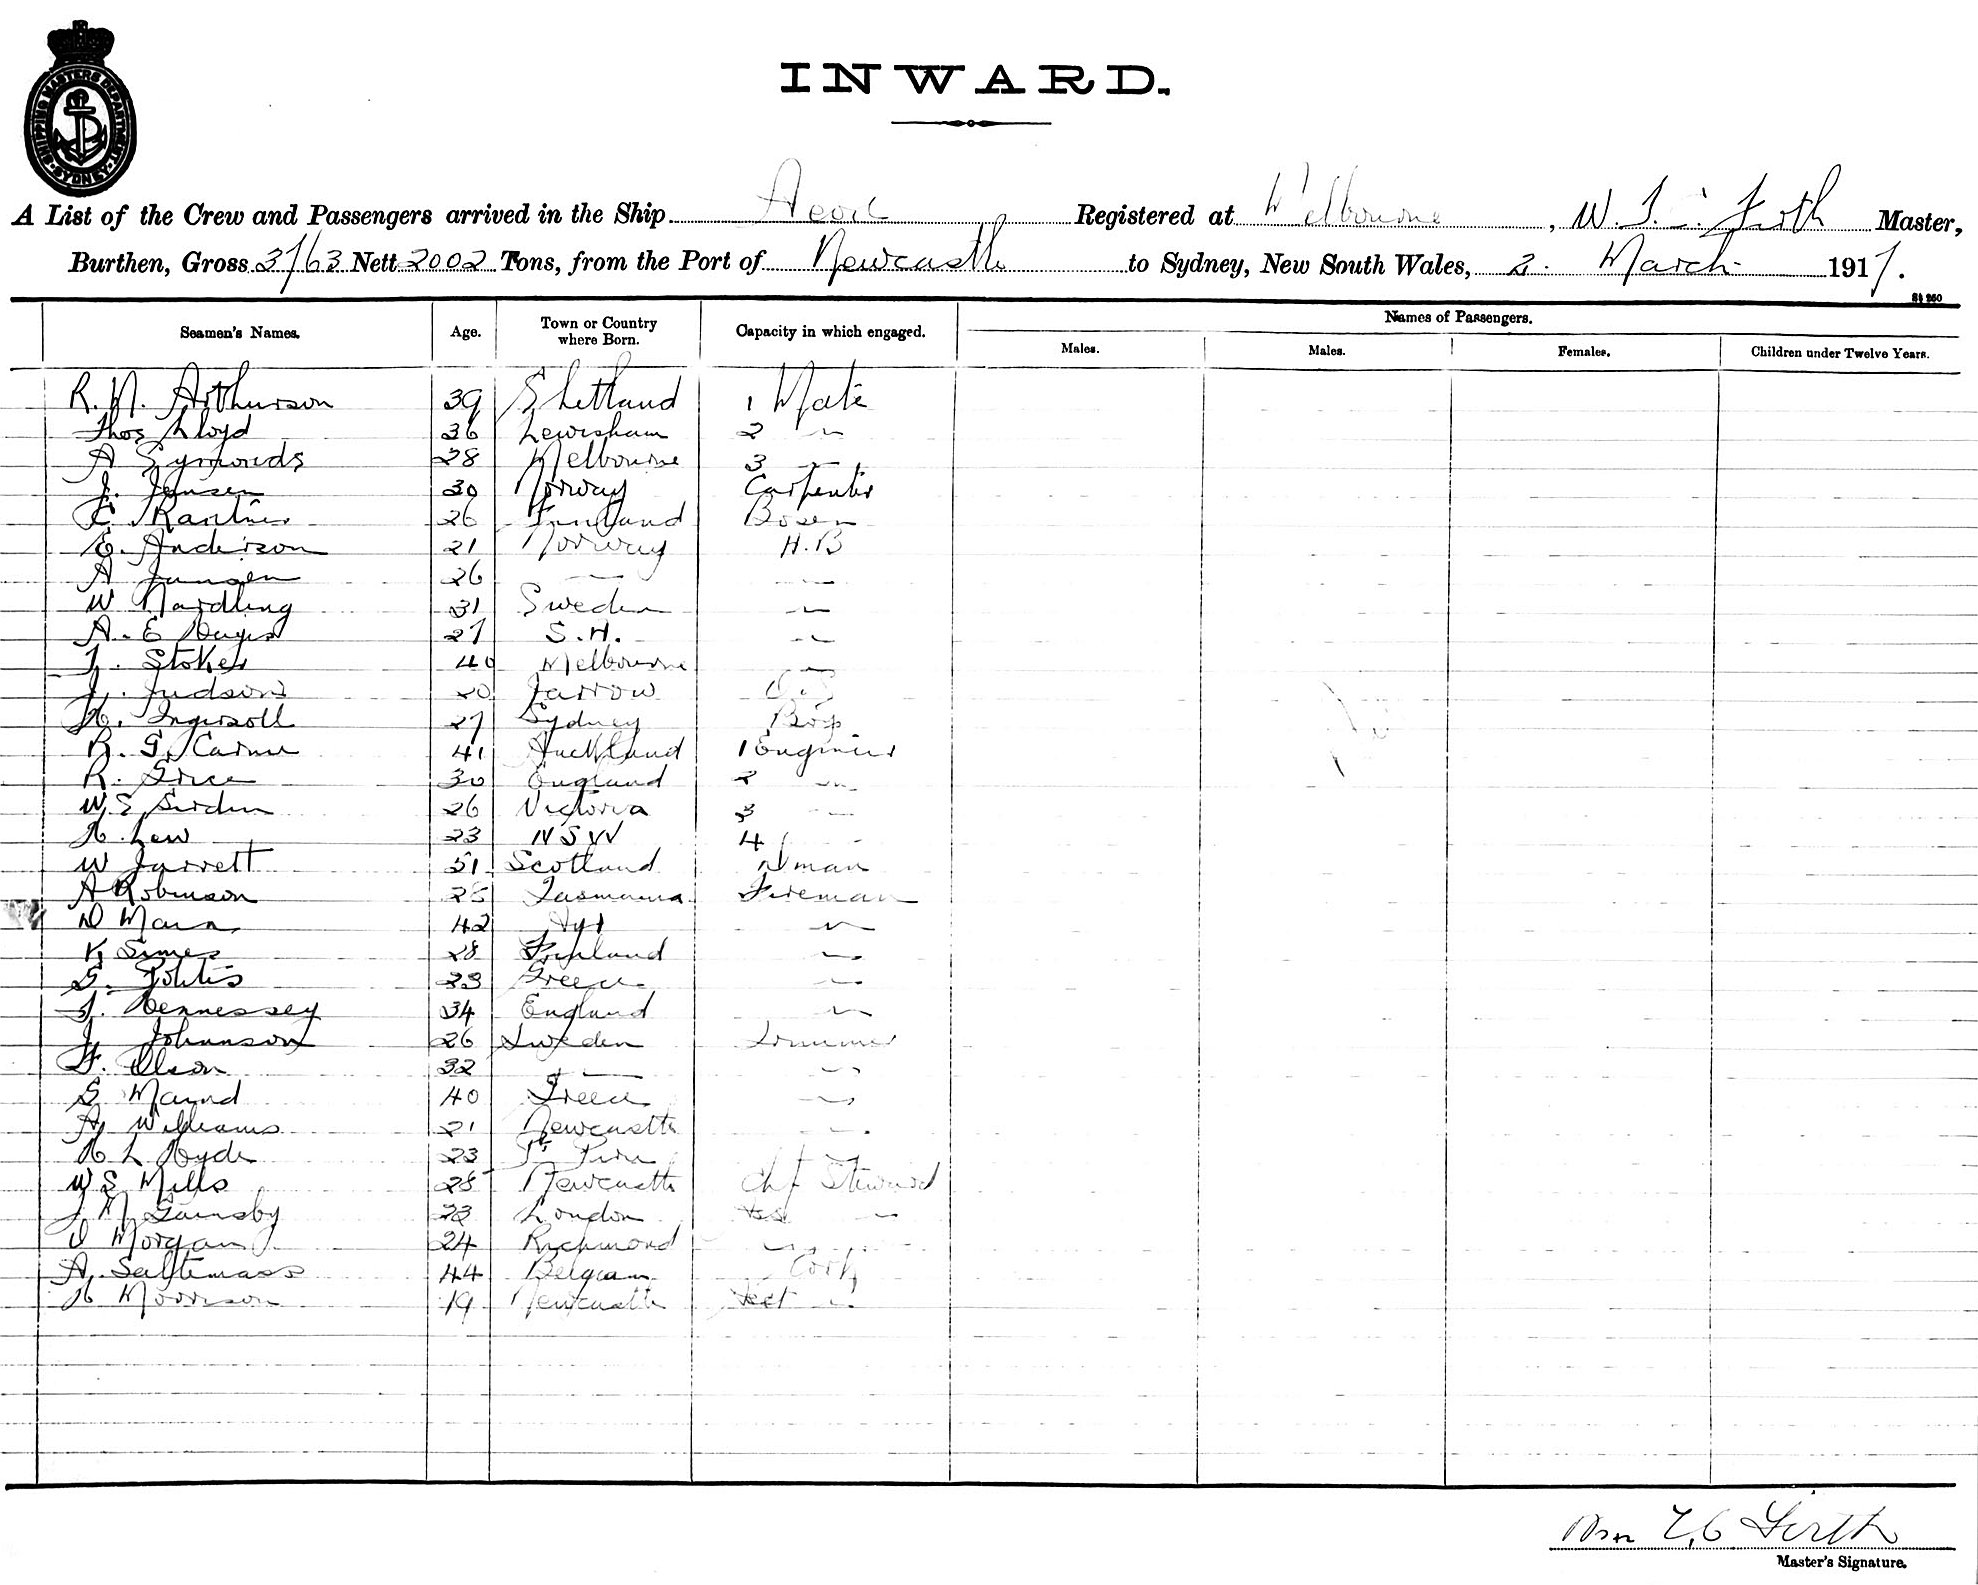 SHIPPING MASTERS DEPARTMENT SYDNEY
INWARD.
A List of the Crew and Passengers arrived in the Ship Registered at Melbourne, W. Firth Master,
Burthen, Gross 3763 Nett 2002 Tons, from the Port of Newcastle to Sydney, New South Wales, 2. March 1917.
Names of Passengers.
Seamen's Names. Age. Town or Country where Born. Capacity in which engaged. Males. Males. Females. Children under Twelve Years.
R. N. Arthurson 39 Shetland 1 Mate
Thos Lloyd 36 Lewisham 2 "
A Symonds 28 Melbourne 3 "
J. Jensen 30 Norway Carpenter
26 Bosen
E. Anderson 21 Norway H.B
A Jansen 26 " "
W Nardling 31 Sweden "
A. E 27 S.A. "
J. Stokes 40 Melbourne "
J. Judson 20 Jarrow
H. Ingersoll 27 Sydney Boy
R. G. 41 Auckland 1 Engineer
R. 30 England 2 "
W. E 26 Victoria 3 "
H. Lew 23 NSW 4 "
W Jarrett 51 Scotland Dman
A Robinson 28 Tasmania Fireman
D 42 Ayr "
K Simes 28 "
G. 23 Greece "
J. Hennessey 34 England "
J. Johnnson 26 Sweden Trimmer
F. Olson 32 " "
G 40 Greece "
A. Williams 21 Newcastle "
H L Hyde 23 Pt Pirie
W E Mills 28 Newcastle Chf Steward
J N Gainsby 23 London "
D Morgan 24 Richmond "
A. 44 Belgian Cook
H Morrison 19 Newcastle "
Wm T, C Firth
Master's Signature.